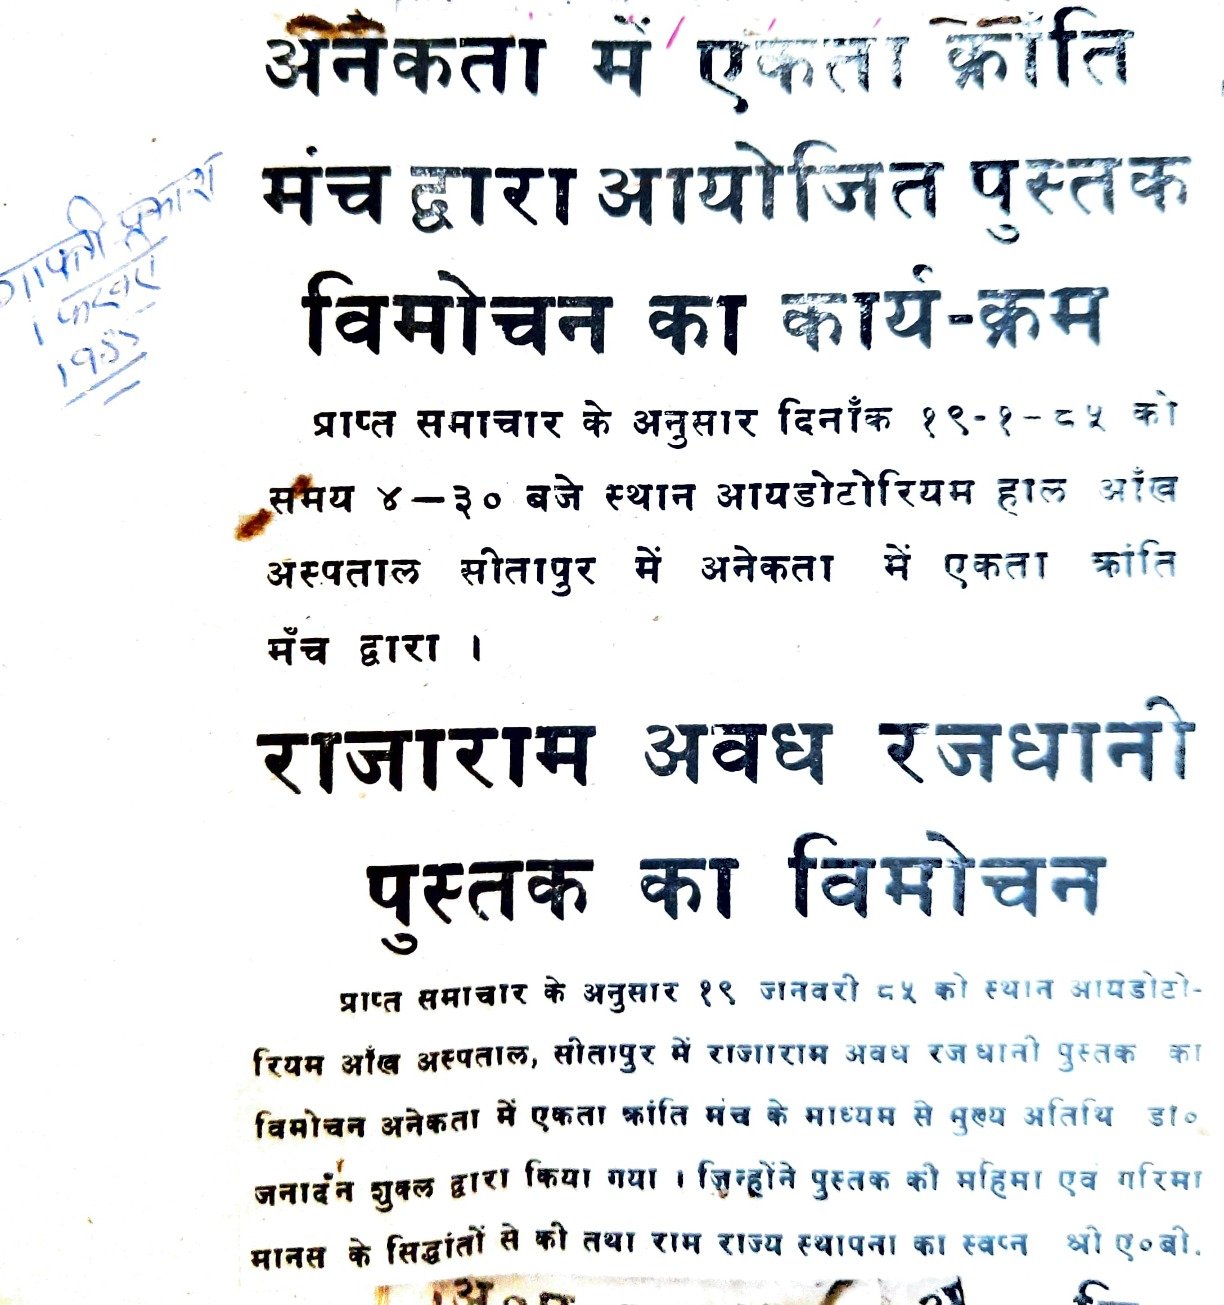 अनेकता में एकता क्राँति
मंच द्वारा आयोजित पुस्तक
विमोचन का कार्य-क्रम
प्रकाश
प्राप्त समाचार के अनुसार दिनाँक १९-१-८५ को
समय ४—३० बजे स्थान आयडोटोरियम हाल आँख
अस्पताल सीतापुर में अनेकता में एकता क्रांति
मँच द्वारा ।
राजाराम अवध रजधानी
पुस्तक का विमोचन
प्राप्त समाचार के अनुसार १९ जनवरी ८५ को स्थान आयडोटो-
रियम आँख अस्पताल, सीतापुर में राजाराम अवध रजधानी पुस्तक का
विमोचन अनेकता में एकता क्रांति मंच के माध्यम से मुख्य अतिथि डा०
जनार्दन शुक्ल द्वारा किया गया । जिन्होंने पुस्तक की महिमा एवं गरिमा
मानस के सिद्धांतों से की तथा राम राज्य स्थापना का स्वप्न श्री ए०बी.